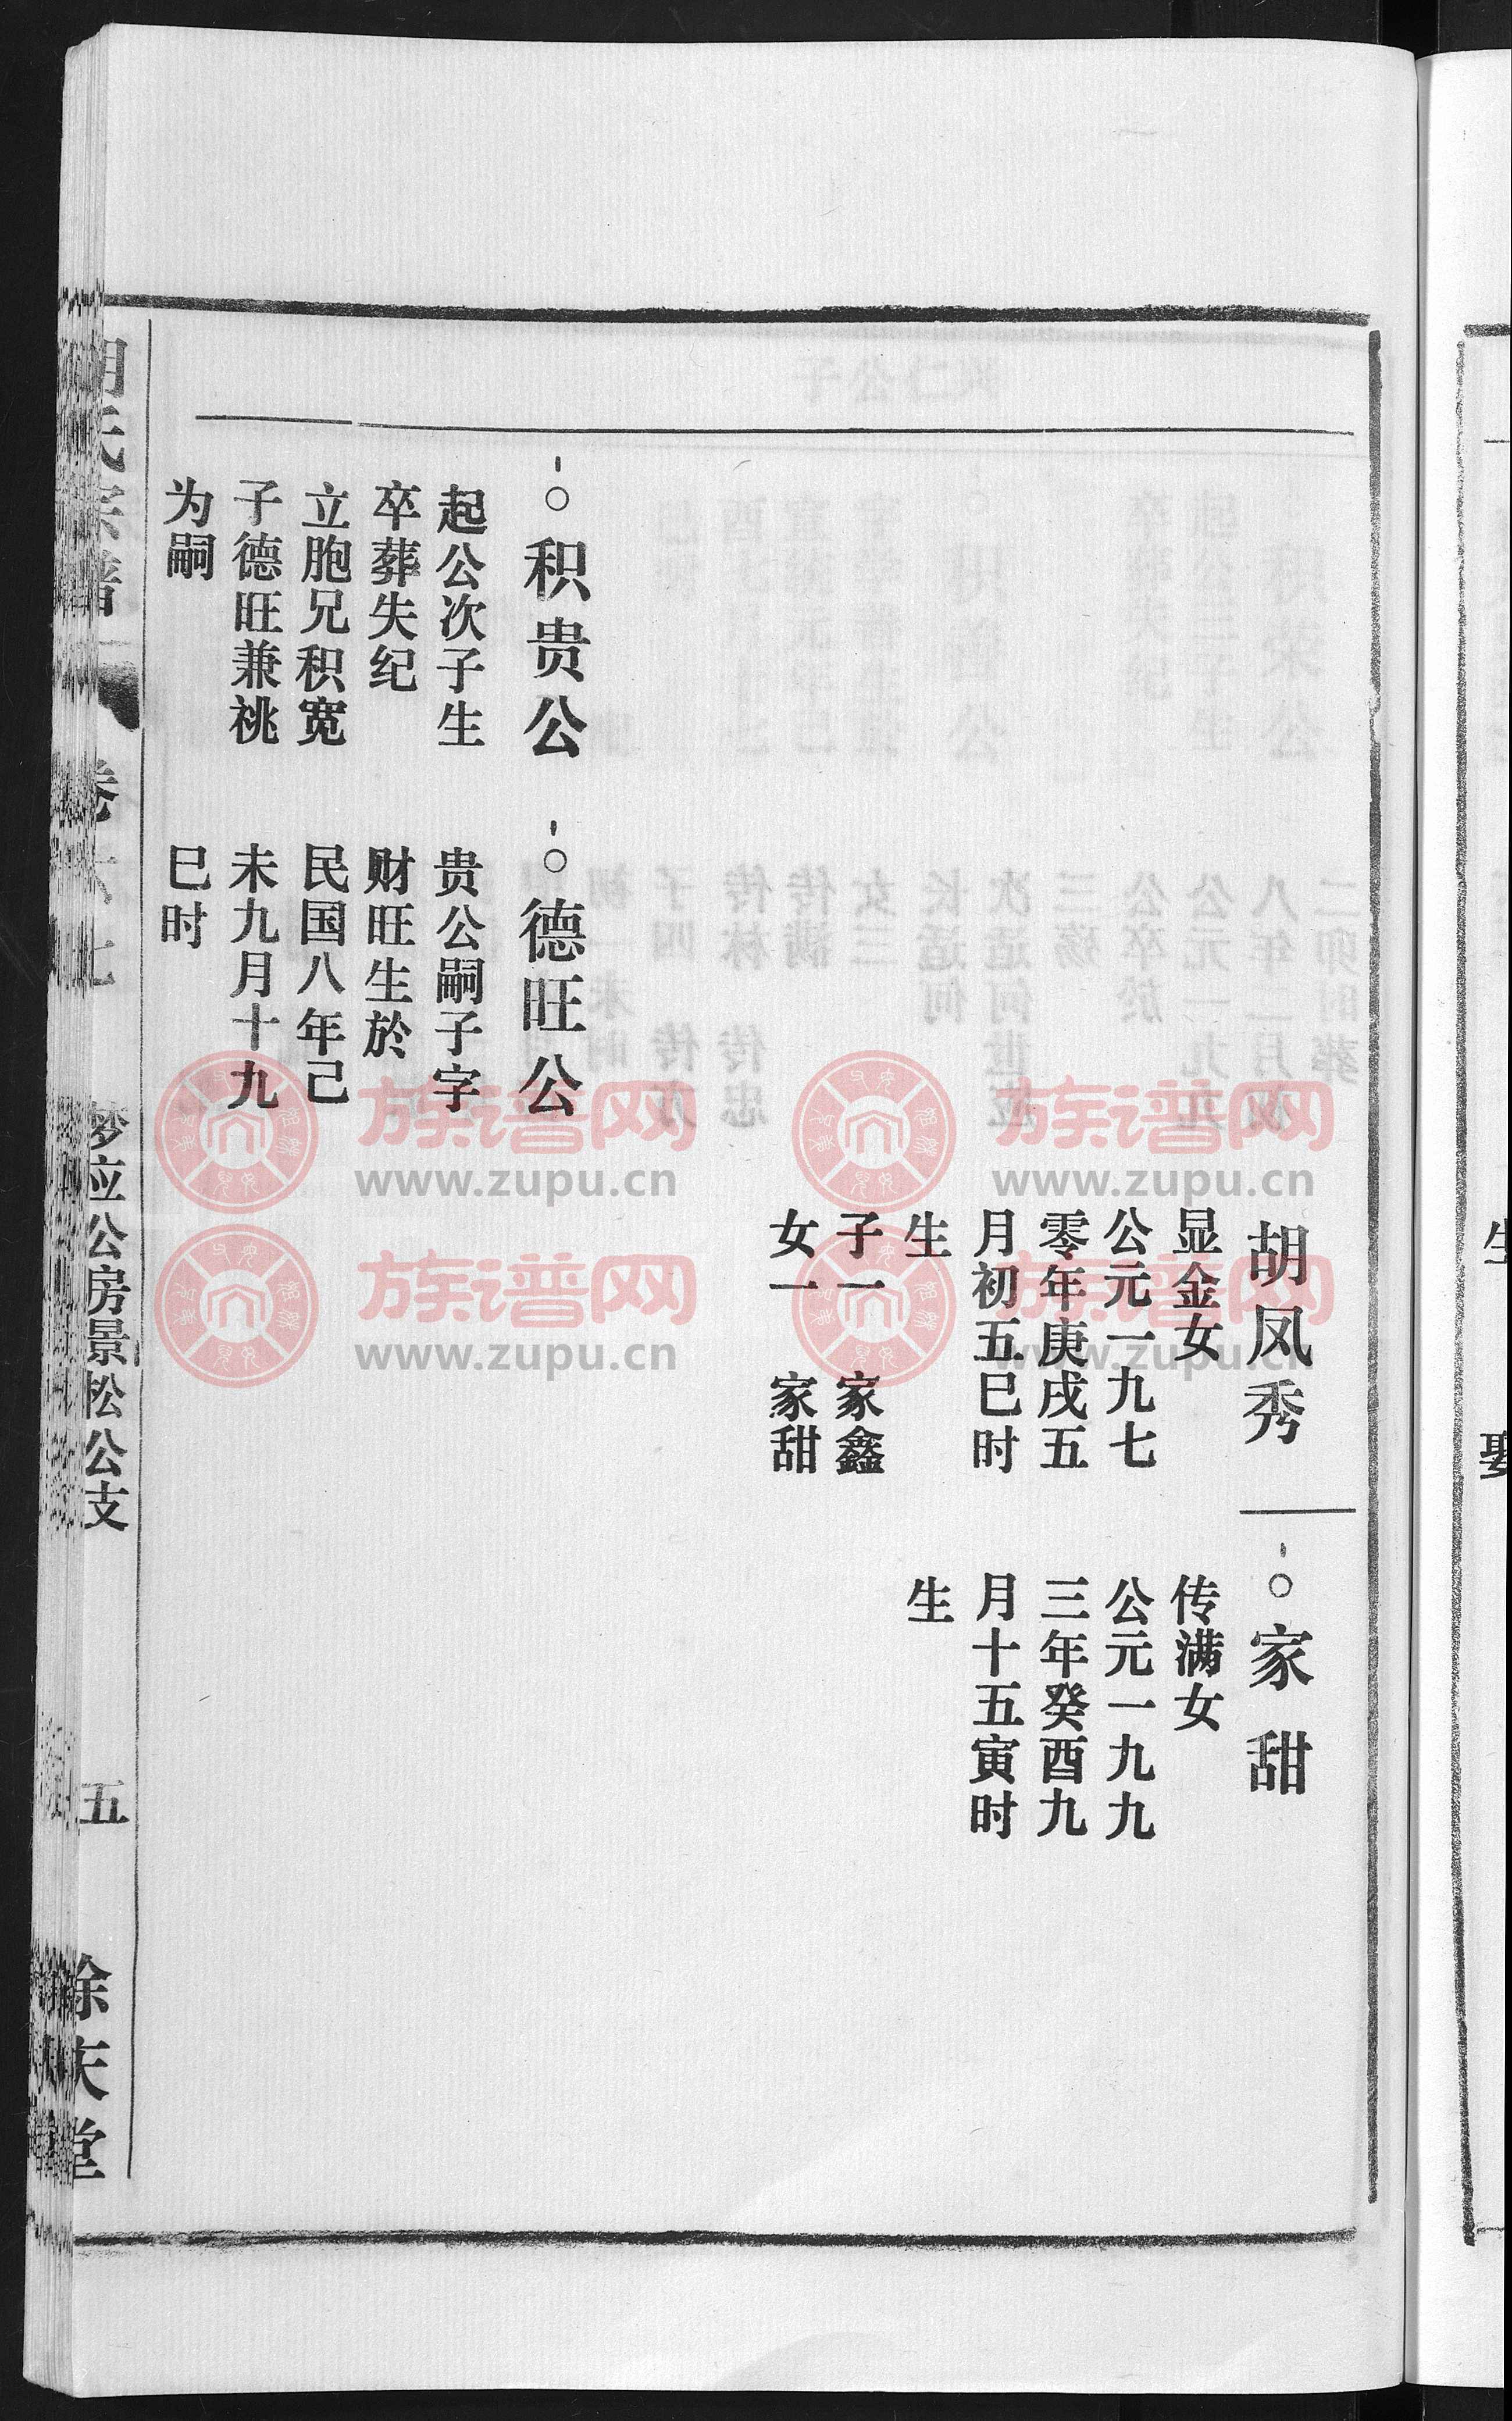 胡凤秀
显金女
公元一九七
零年庚戌五
月初五巳时
生
子一　家鑫
女一　家甜
家甜
传满女
公元一九九
三年癸酉九
月十五寅时
生
积贵公
起公次子生
卒葬失纪
立胞兄积宽
子德旺兼祧
为嗣
德旺公
贵公嗣子字
财旺生於
民国八年己
未九月十九
巳时
胡氏宗谱
卷
梦应公房景松公支
五
堂
族谱网
www.zupu.cn
族谱网
www.zupu.cn
族谱网
www.zupu.cn
族谱网
www.zupu.cn